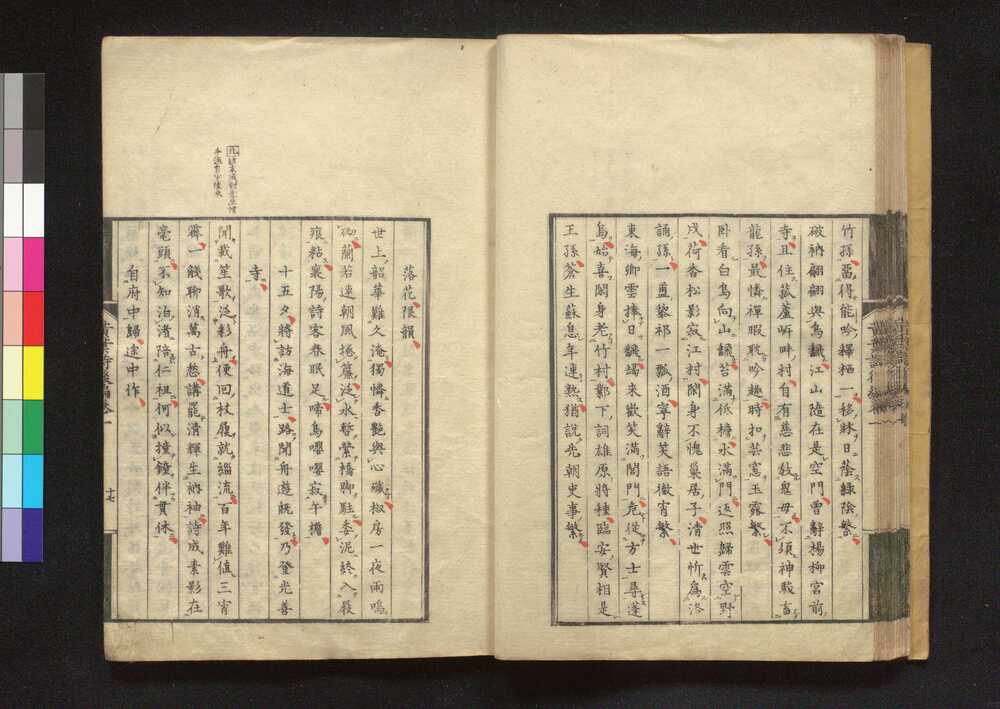 竹孫當得能吟擇栖一移牀日蔭綠陰繁
破衲翩翩與鳥飜江山隨在是空門曾辭楊柳宮前
寺且住菰蘆岍畔村自有慈悲敎鬼母不須神駿畜
龍孫最憐禪暇耽吟趣時扣芸窓玉露繁
臥看白鳥向山飜苔滿低檐水滿門返照歸雲空野
戍荷香松影寂江村閑身不愧巢居子清世忻爲洛
誦孫一盂藜祁一瓢酒寧辭笑語徹宵繁
東海卿雲捧日飜竭來歡笑滿閑門危從方士尋蓬
島始喜閑身老竹村鄴下詞雄原將種臨安賢相是
王孫蒼生蘇息年連熟猶說先朝史事繁
落花限韻
世上韶華難久淹獨憐香艷與心孅椒房一夜雨鳴
砌蘭若連朝風捲簾泛水暫縈橋脚駐委泥終入屐
痕粘襄陽詩客春眠足啼鳥嚶嚶寂午檐
十五夕將訪海道士路聞舟遊旣發乃登光善
寺
聞載笙歌泛彩舟便回杖履就緇流百年難値三宵
霽一觴聊消萬古愁講罷清輝生衲袖詩成素影在
毫頭不知泊渚陪仁祖何似撞鐘伴貫休
自府中歸途中作
十七